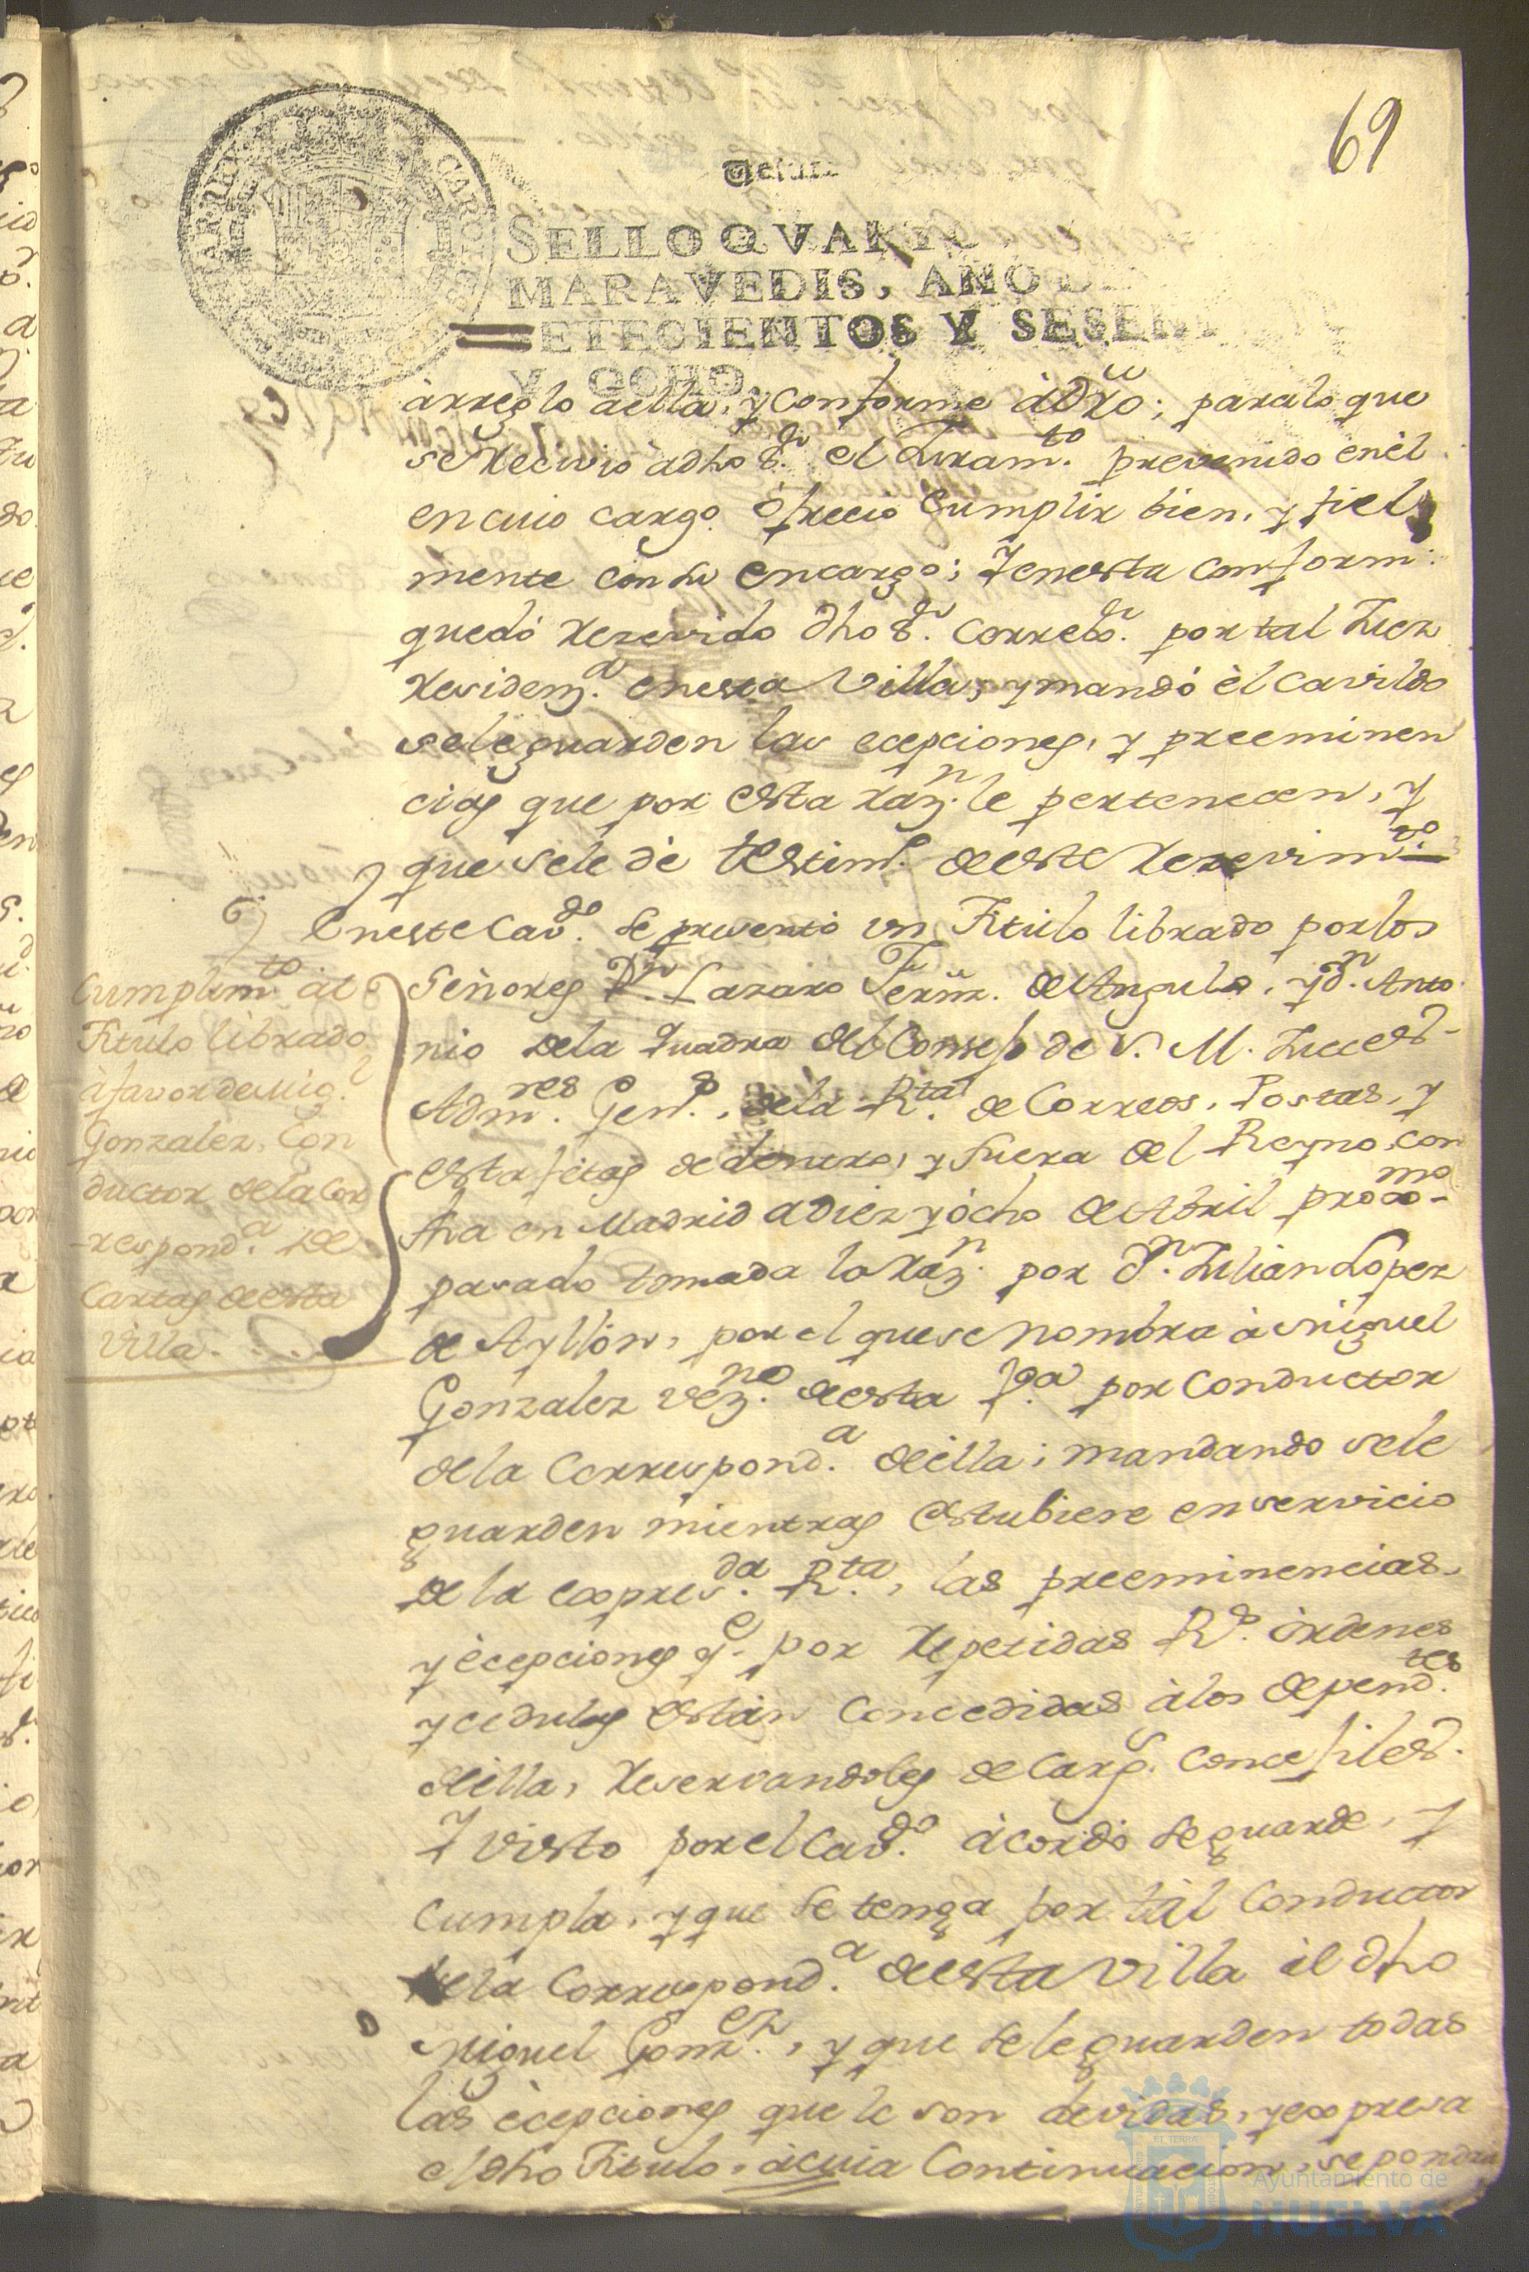 69
SELLO QVARTO
MARAVEDIS, AÑO DE
ETECIENTOS Y SESEN
Y OCHO.
àrreglo aella, y conforme àDrõ; paralo que
se Recivio àdho Sr. el Juramto. prevenido enèl
encuio cargo. ofrecio Cumplir bien, y fiel
mente con su encargo; Y enesta conform:
quedò Rezevido dho Sr. Corregor. por tal Juez
Residenza. enesta Villa, y mandò èl Cavildo
sele guarden las ecepciones, y preeminen
cias que por esta Razn. le pertenecen, y
que sele dè testimo. deeste Rezevimto.
Eneste Cavdo. se presentò un Titulo librado porlos
Señores Dn. Lazaro Fernz. deAngulo, y dn. Anto
nio dela Quadra del Consejo de S. M. Juezes
Admres. Gens. dela Rta. de Correos, Postas, y
estafetas de dentro, y fuera del Reyno, con
fha en Madrid adiez yòcho deAbril proxmo
pasado tomada la Razn. por Dn. Julian Lopez
de Ayllòn, por el quese nombra à Miguel
Gonzalez vezno. deesta Va. por Conductor
dela Corresponda. deella; mandando sele
guarden mientras estubiere enservicio
dela expresda. Rta., las preeminencias,
y ècepciones qe. por Repetidas Rs. òrdenes
y cedulas estàn Concedidas àlos dependtes.
deella, Reservandoles de Cargs. Concejiles.
Y visto porel Cavdo. àcordò se guarde, y
cumpla, y que se tenga por tàl Conductor
dela Corresponda. deesta Villa èl dho
Miguel Gonzez., y que sele guarden todas
las ècepciones que le son devidas, y expresa
el dho Titulo, àcuia Continuacion, se pondra
Cumplimto. àl
Titulo librado
à favor de Migl.
Gonzalez, Con
ductor dela Cor
respond.a de
Cartas deesta
Villa.
EL TERRA
Ayuntamiento de
HUELVA